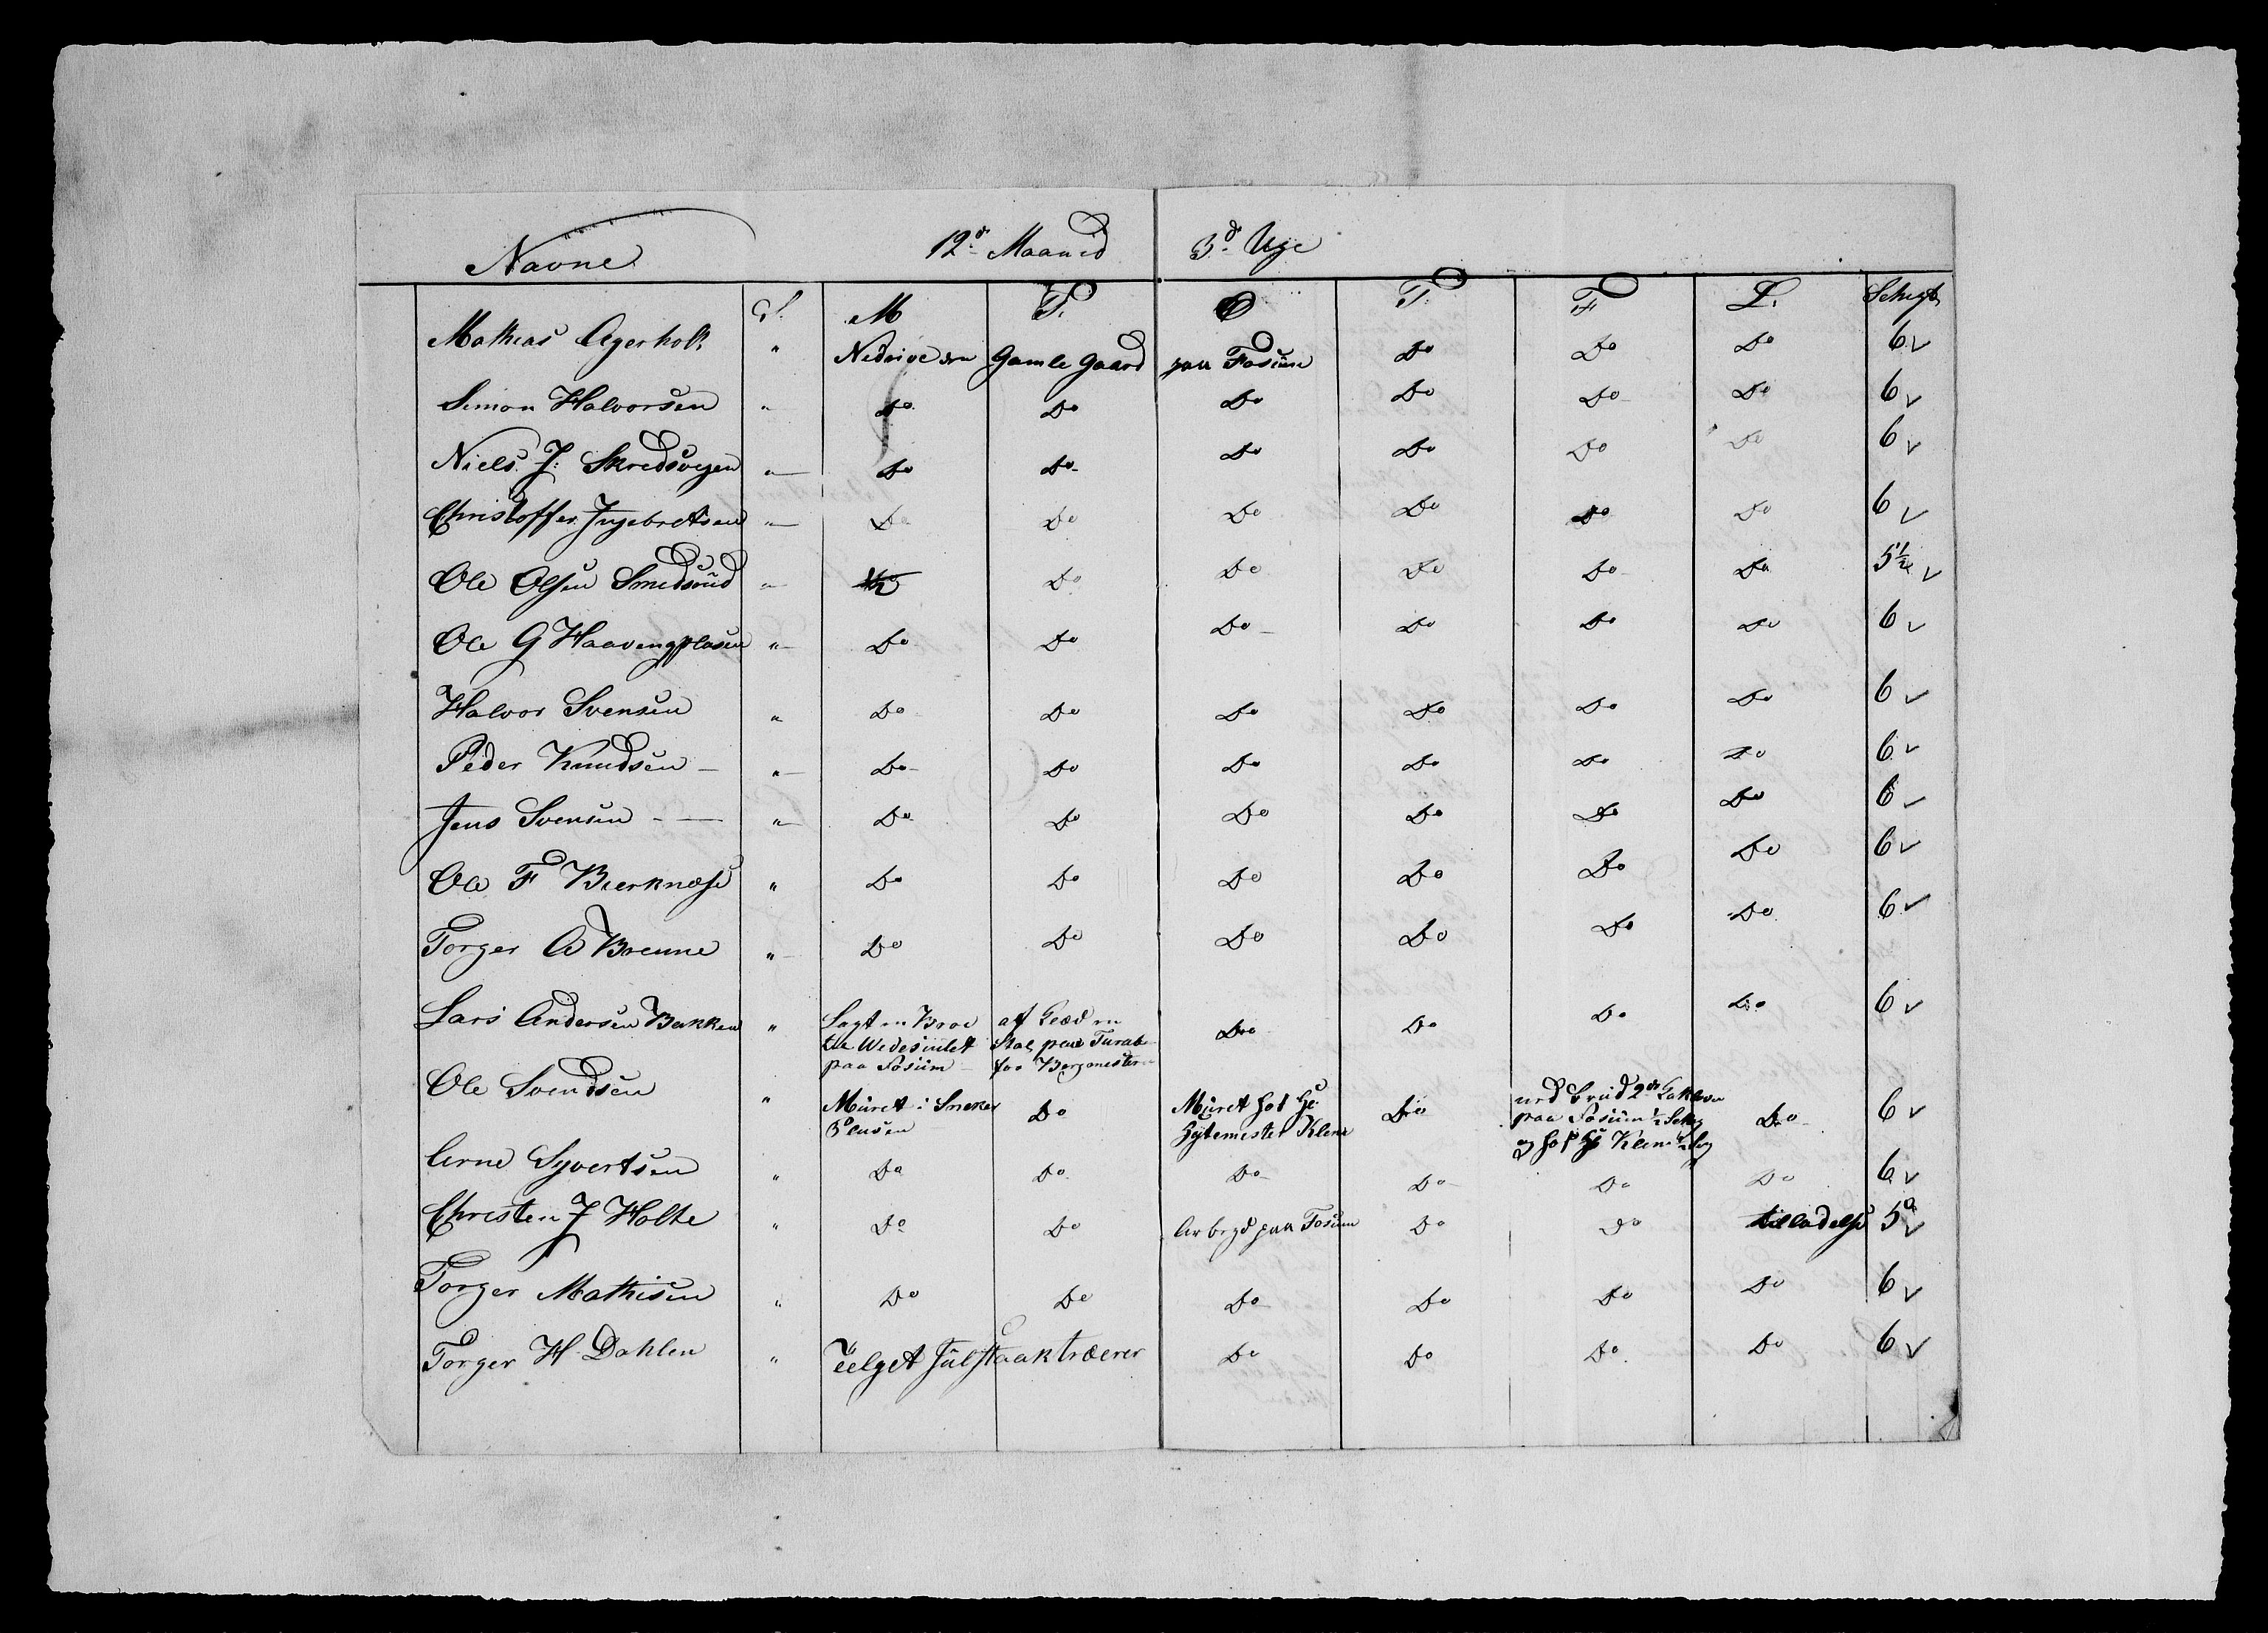 Navne 12te Maaned 3de Uge
S. M T. O T. F L. Schigt
Mathias Agerholt " Nedrive den Gamle Gaard paa Fosüm Do Do Do 6
Simon Halvorsen " Do Do Do Do Do Do 6
Niels J: Skredsvegen " Do Do Do Do Do Do 6
Christoffer Ingebretsen " Do Do Do Do Do Do 6
Ole Olsen Smedsrüd " 1/2 Do Do Do Do Do Do 5 1/2
Ole G Haavengplasen " Do Do Do Do Do Do 6
Halvor Svensen " Do Do Do Do Do Do 6
Peder Knudsen " Do Do Do Do Do Do 6
Jens Svensen " Do Do Do Do Do Do 6
Ole F Bierknæse " Do Do Do Do Do Do 6
Torger A Brenne " Do Do Do Do Do Do 6
Lars Andersen Bakken " Lagt en Broe af Do Do Do Do 6
til
paa Fosüm for Bergmester
Ole Svendsen " Müret i Sneker Do Müret hos Hr Do Do 6
Plasen Hytemester Klem paa Fosüm 1/2
og hos Hr Klem 1/2
Arne Syvertsen " Do Do Do Do Do Do 6
Christen J Holte " Do Do Arbeyd paa Fosüm Do Do tilladelse 5
Torger Mathisen " Do Do Do Do Do Do 6
Torger H. Dahlen " Telget Do Do Do Do 6